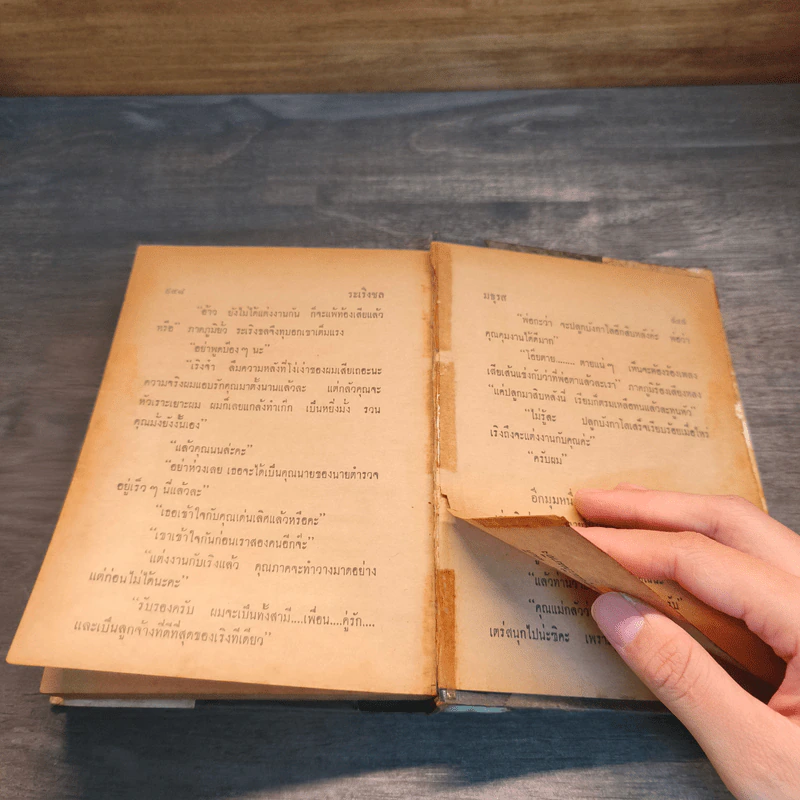 ระเริงชล
"อ้าว ยังไม่ได้แต่งงานกัน ก็จะแพ้ท้องเสียแล้ว
หรือ" ภาคภูมิยั่ว ระเริงชลจึงทุบอกเขาเต็มแรง
"อย่าพูดบ้องๆ นะ"
"เริงจ๋า ลืมความหลังที่โง่เง่าของผมเสียเถอะนะ
ความจริงผมแอบรักคุณมาตั้งนานแล้วล่ะ แต่กลัวคุณจะ
หัวเราะเยาะผม ผมก็เลยแกล้งทำเก๊ก เป็นหยิ่งมั่ง รวน
คุณมั่งยังงั้นเอง"
"แล้วคุณนนล่ะคะ"
"อย่าห่วงเลย เธอจะได้เป็นคุณนายของนายตำรวจ
อยู่เร็วๆ นี้แล้วล่ะ"
"เธอเข้าใจกับคุณเด่นเลิศแล้วหรือคะ"
"เขาเข้าใจกันก่อนเราสองคนอีกจ้ะ"
"แต่งงานกับเริงแล้ว คุณภาคจะทำวางมาดอย่าง
แต่ก่อนไม่ได้นะคะ"
"รับรองครับ ผมจะเป็นทั้งสามี....เพื่อน....คู่รัก....
และเป็นลูกจ้างที่ดีที่สุดของเริงทีเดียว"
มธุรส
"พ่อกะว่า จะปลูกบังกาโลอีกสิบหลังค่ะ พ่อว่า
คุณคุมงานได้ดีมาก"
"โอ๊ยตาย........ตายแน่ๆ เห็นจะต้องร้องเพลง
เสียเส้นแข่งกับว่าที่พ่อตาแล้วละเรา" ภาคภูมิร้องเสียงหลง
"แค่ปลูกมาสิบหลังนี่ เรียมก็ตรมเหลือทนแล้วละทูนหัว"
"ไม่รู้ละ ปลูกบังกาโลเสร็จเรียบร้อยเมื่อไหร่
เริงถึงจะแต่งงานกับคุณค่ะ"
"ครับผม"
อีกมุมหนึ่
"แล้วท่าน
"คุณแม่กลัวว
เตร่สนุกไปน่ะซิคะ เพรา